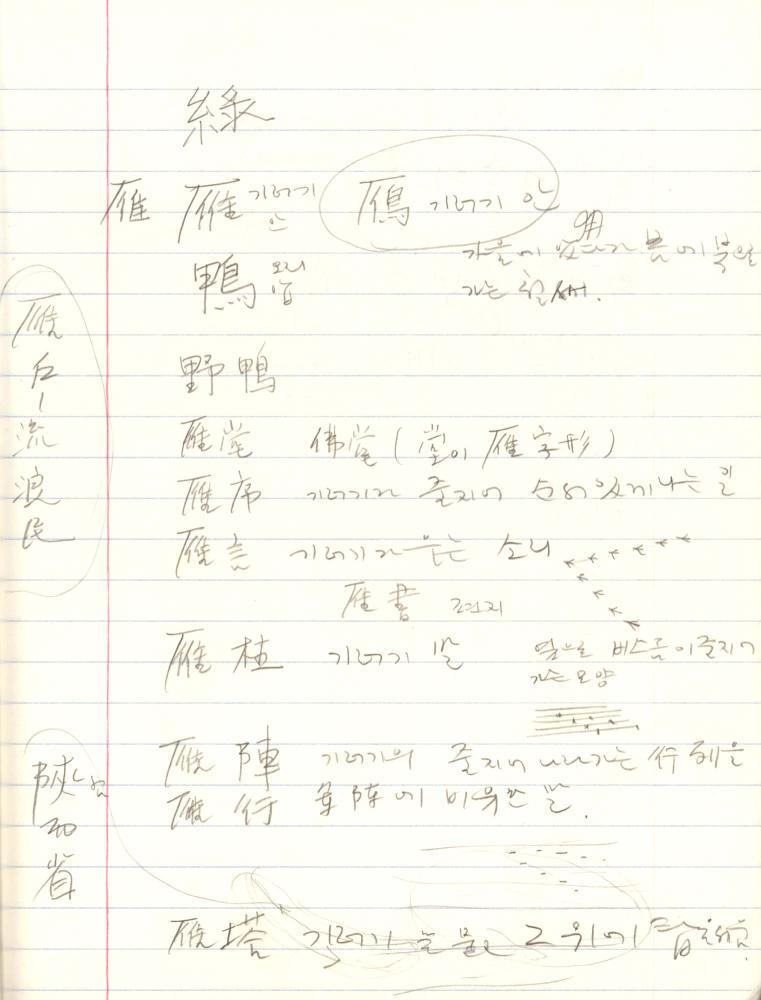 綠
雁 雁 기러기 안 鴈 기러기 안
鴨 오리 압
가을에 왔다가 봄에 북으로
가는 철새.
野鴨
雁戶ー流浪民
雁堂 佛堂(堂이 雁字形)
雁序 기러기가 줄지어 순서있게 나는 일
雁言 기러기가 우는 소리
雁書 편지
雁柱 기러기 발
옆으로 비스듬이 줄지어
가는 모양
陜西省
雁陣 기러기의 줄지어 나라가는 行列을
雁行 軍陣에 비유한 말.
雁塔 기러기 그 위에 탑을